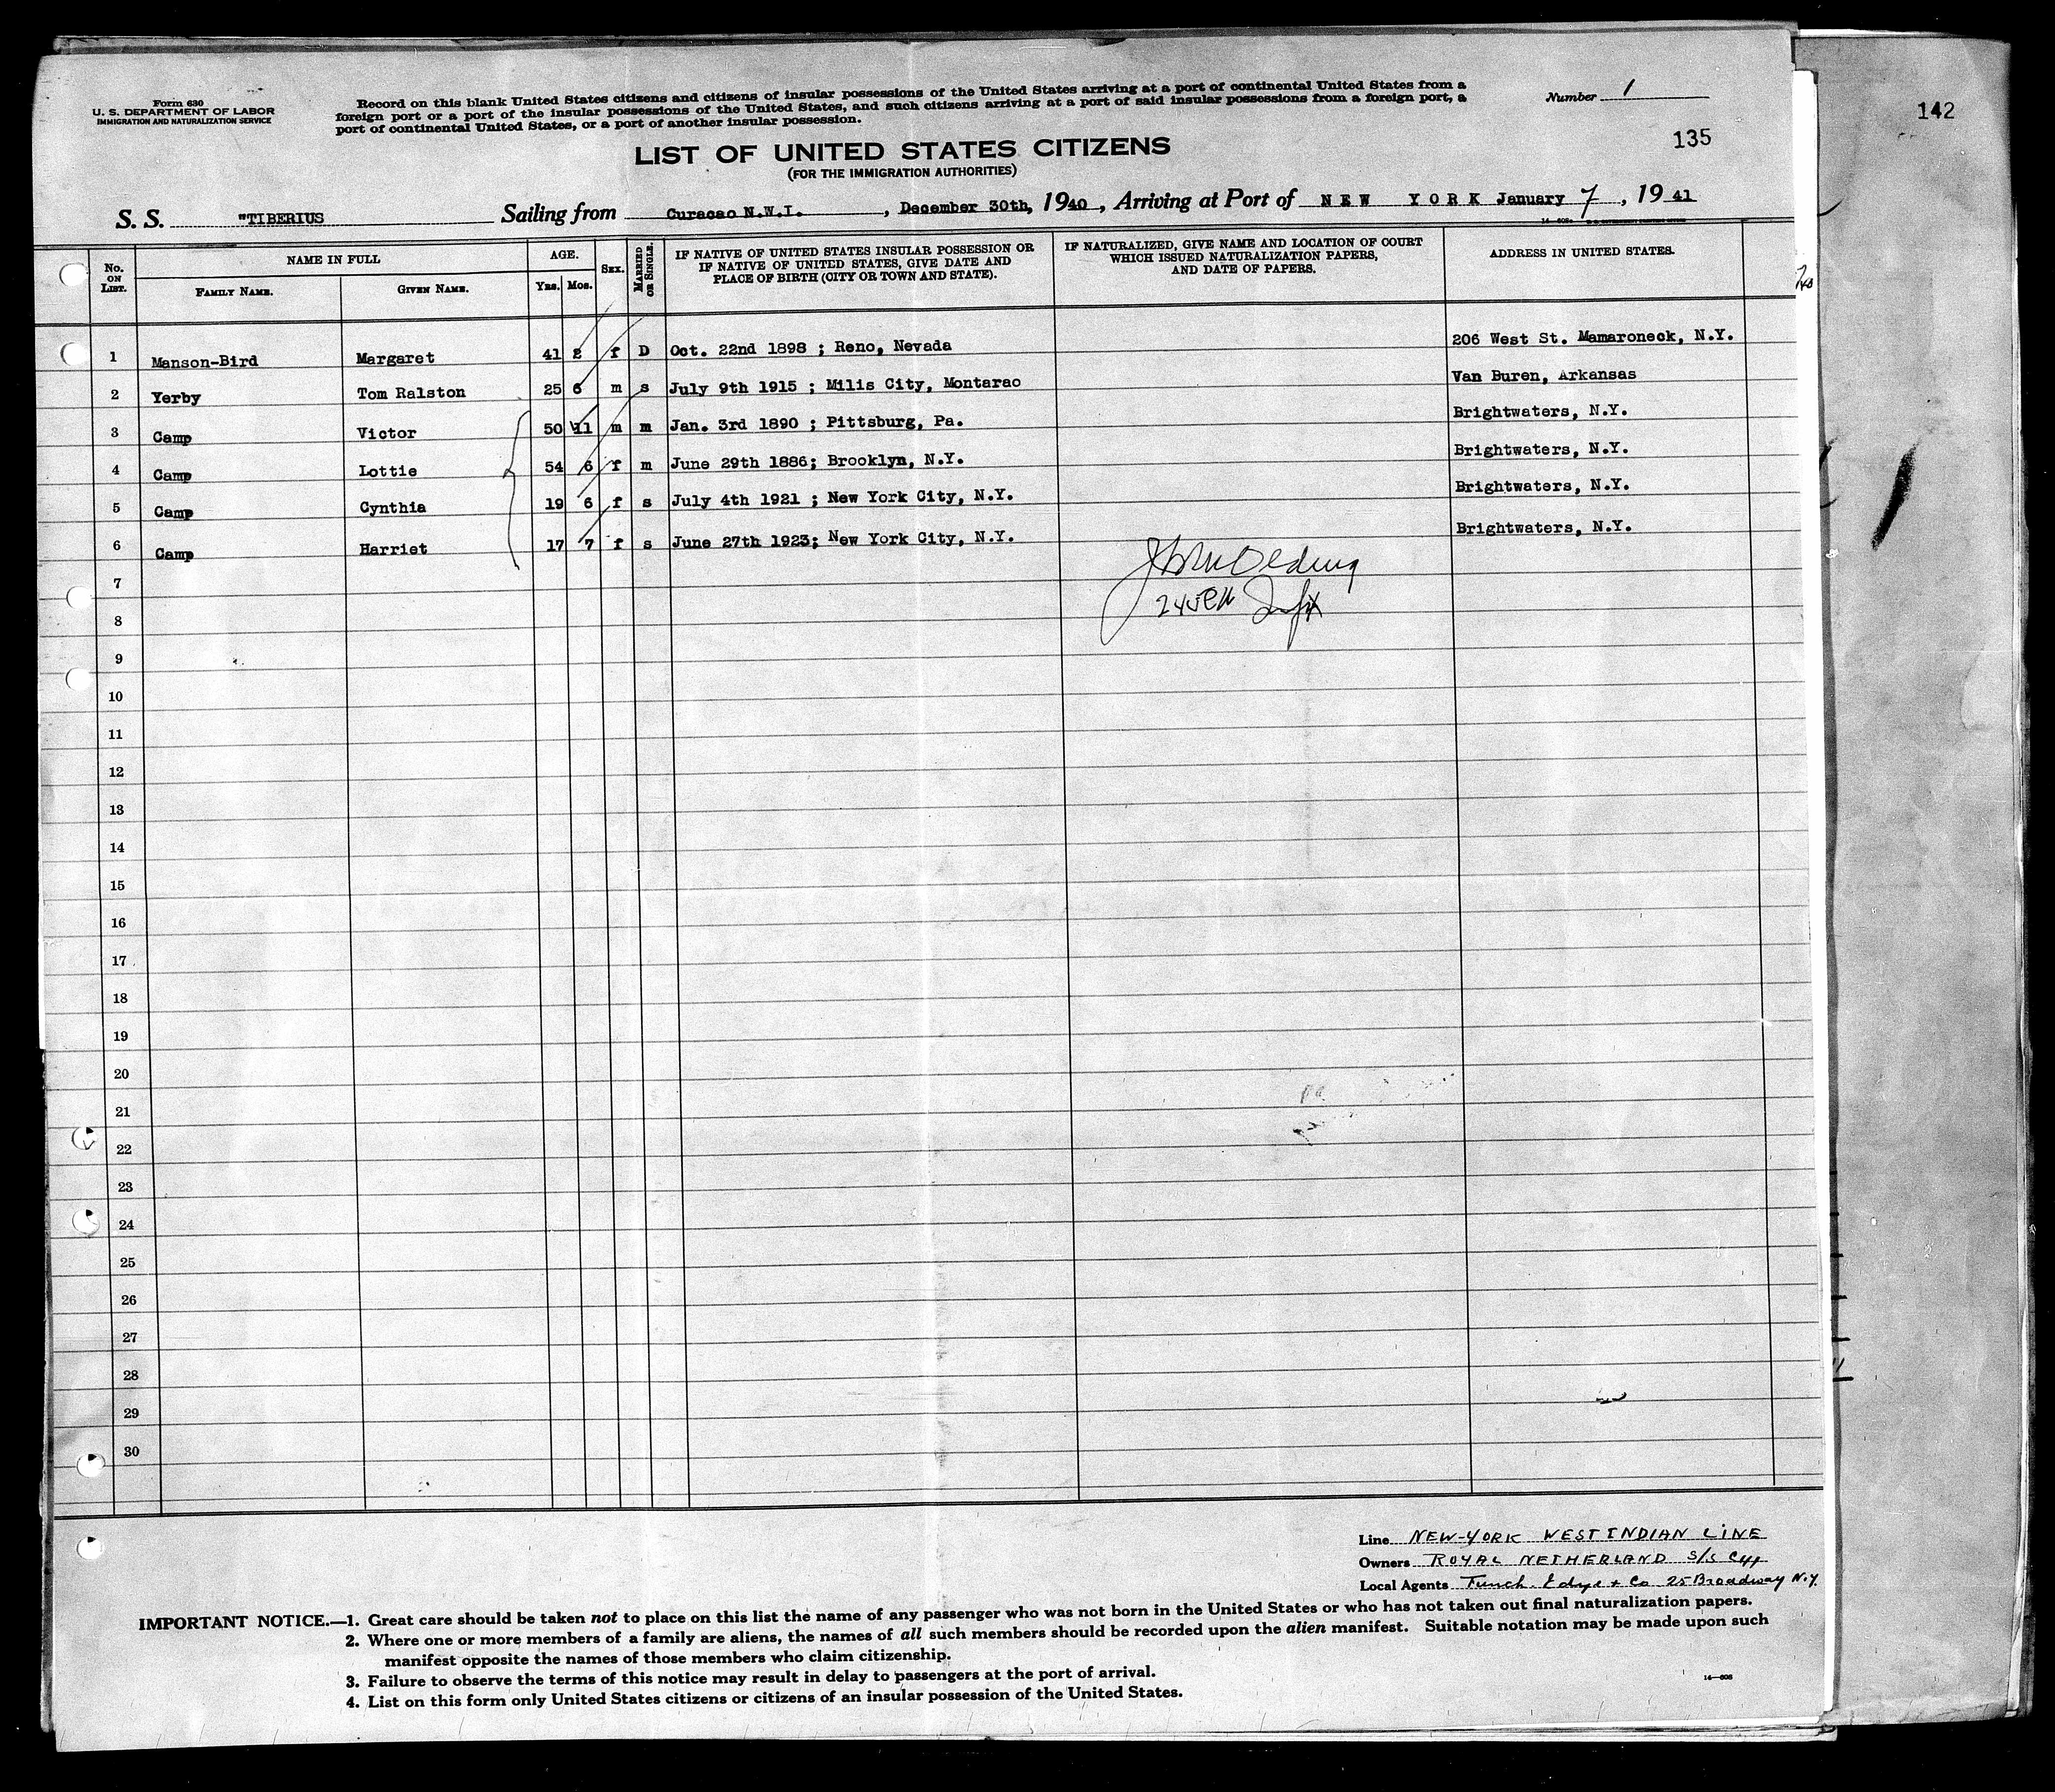 Form 630
U. S. DEPARTMENT OF LABOR
IMMIGRATION AND NATURALIZATION SERVICE
Record on this blank United States citizens and citizens of insular possessions of the United States arriving at a port of continental United States from a
foreign port or a port of the insular possessions of the United States, and such citizens arriving at a port of said insular possessions from a foreign port, a
port of continental United States, or a port of another insular possession.
Number 1
142
135
LIST OF UNITED STATES CITIZENS
(FOR THE IMMIGRATION AUTHORITIES)
S. S. "TIBERIUS Sailing from Curacao N.W.I. , December 30th, 1940 , Arriving at Port of NEW YORK January 7 , 19 41
No. ON LIST. NAME IN FULL AGE. SEX. MARRIED OR SINGLE. IF NATIVE OF UNITED STATES INSULAR POSSESSION OR IF NATIVE OF UNITED STATES, GIVE DATE AND PLACE OF BIRTH (CITY OR TOWN AND STATE). IF NATURALIZED, GIVE NAME AND LOCATION OF COURT WHICH ISSUED NATURALIZATION PAPERS, AND DATE OF PAPERS. ADDRESS IN UNITED STATES.
FAMILY NAME. GIVEN NAME. YRS. MOS.
1 Manson-Bird Margaret 41 2 f D Oct. 22nd 1898 ; Reno, Nevada 206 West St. Mamaroneck, N.Y.
2 Yerby Tom Ralston 25 6 m s July 9th 1915 ; Milis City, Montarao Van Buren, Arkansas
3 Camp Victor 50 11 m m Jan. 3rd 1890 ; Pittsburg, Pa. Brightwaters, N.Y.
4 Camp Lottie 54 6 f m June 29th 1886; Brooklyn, N.Y. Brightwaters, N.Y.
5 Camp Cynthia 19 6 f s July 4th 1921 ; New York City, N.Y. Brightwaters, N.Y.
6 Camp Harriet 17 7 f s June 27th 1923; New York City, N.Y. Brightwaters, N.Y.
7
8
9
10
11
12
13
14
15
16
17
18
19
20
21
22
23
24
25
26
27
28
29
30
Line NEW-YORK WEST INDIAN LINE
Owners ROYAL NETHERLAND S/S
Local Agents Funch. Edye + Co 25 Broadway N.Y.
IMPORTANT NOTICE.—1. Great care should be taken not to place on this list the name of any passenger who was not born in the United States or who has not taken out final naturalization papers.
2. Where one or more members of a family are aliens, the names of all such members should be recorded upon the alien manifest. Suitable notation may be made upon such
manifest opposite the names of those members who claim citizenship.
3. Failure to observe the terms of this notice may result in delay to passengers at the port of arrival.
4. List on this form only United States citizens or citizens of an insular possession of the United States.